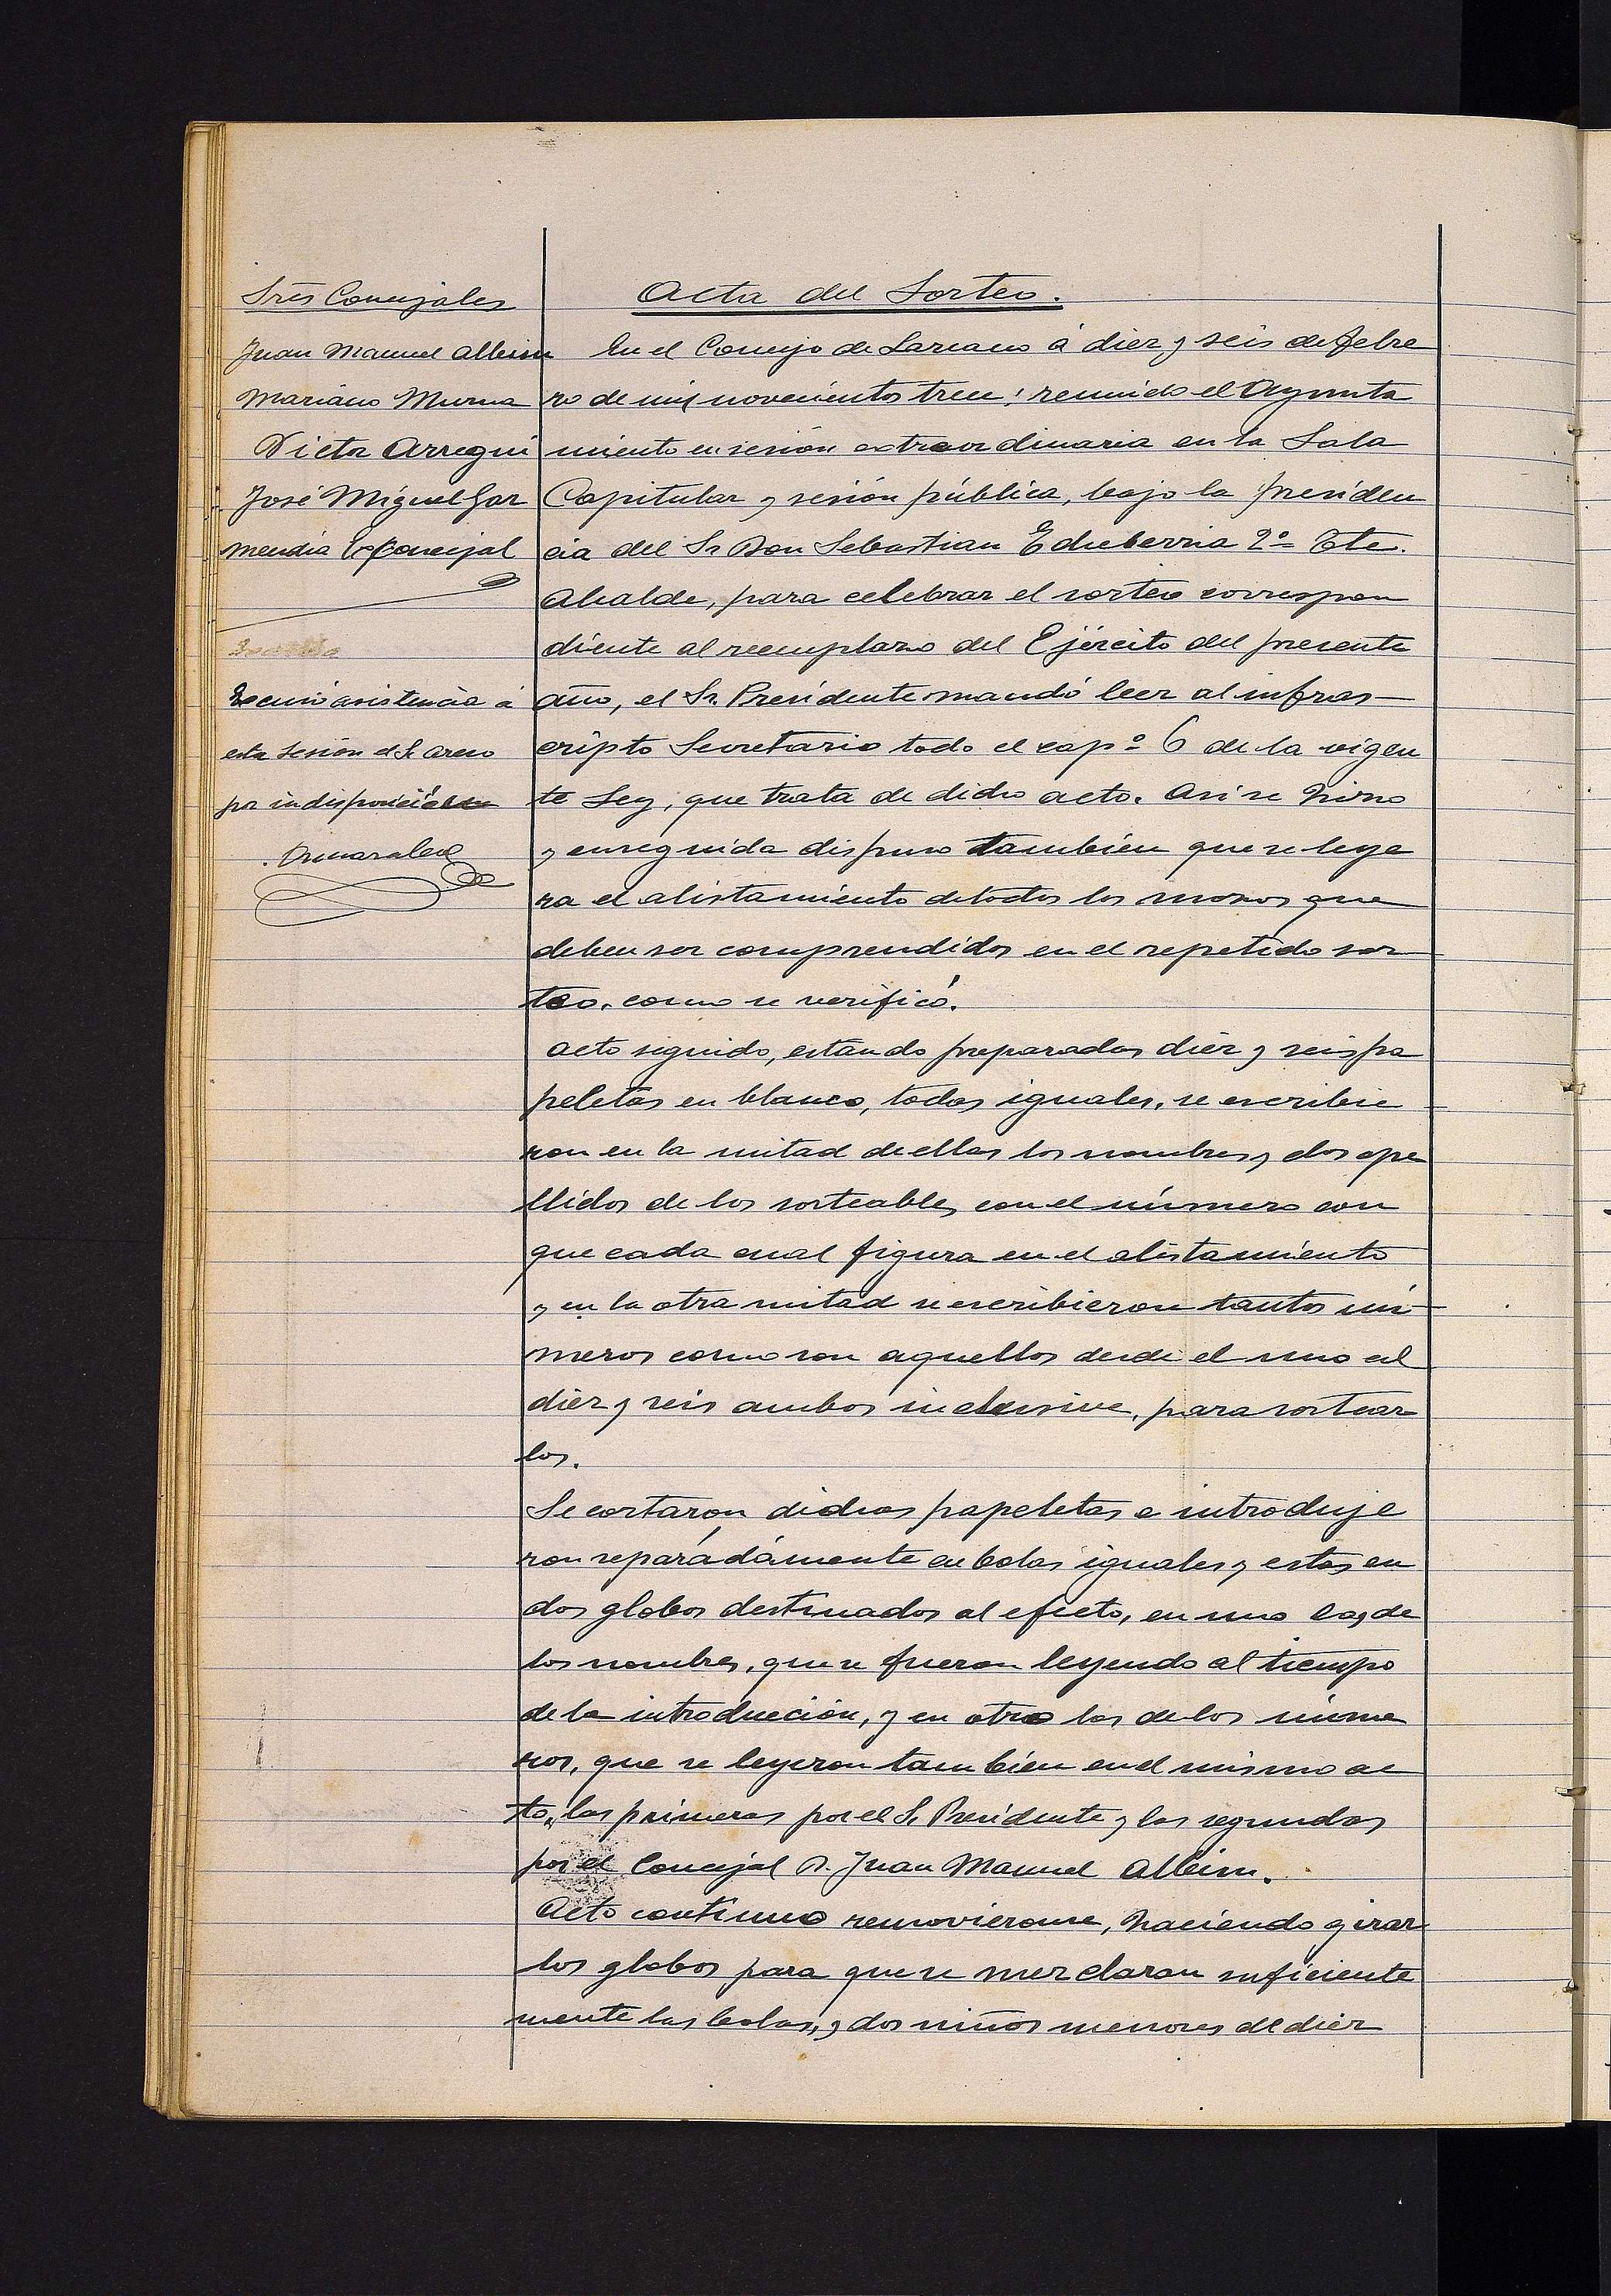 Sres Concejales
Juan Manuel Albisu
Mariano Murua
Victor Arregui
José Miguel Gar
mendia Exconcejal
Escusó asistencia á
esta sesión el Sr Areso
por indisposición
Acta del Sorteo.
En el Concejo de Lazcano á diez y seis de Febre
ro de mil novecientos trece: reunido el Ayunta
miento en sesión extraordinaria en la Sala
Capitular y sesión pública, bajo la presiden
cia del Sr Don Sebastian Echeberria 2º Tte.
Alcalde, para celebrar el sorteo correspon
diente al reemplazo del Ejército del presente
año, el Sr. Presidente mandó leer al infras-
cripto Secretario todo el capº 6 de la vigen
te Ley, que trata de dicho acto. Asi se hizo
y enseguida dispuso también que se leye
ra el alistamiento de todos los mozos que
deben ser comprendidos en el repetido sor
teo, como se verificó.
Acto seguido, estando preparadas diez y seis pa
peletas en blanco, todas iguales, se escribie
ron en la mitad de ellas los nombres y dos ape
llidos de los sorteables con el número con
que cada cual figura en el alistamiento
y en la otra mitad se escribieron tantos nú
meros como son aquellos desde el uno al
diez y seis ambos inclusive, para sortear
los.
Se cortaron dichas papeletas e introduje
ron separádámente en bolas iguales y estas en
dos globos destinados al efecto, en uno las de
los nombres, que se fueron leyendo al tiempo
de la introducción, y en otro las de los núme
ros, que se leyeron también en el mismo ac
to, las primeras por el Sr Presidente y las segundas
por el Concejal D. Juan Manuel Albisu.
Acto continuo removieronse, haciendo girar
los globos para que se mezclaran suficiente
mente las bolas, y dos niños menores de diez